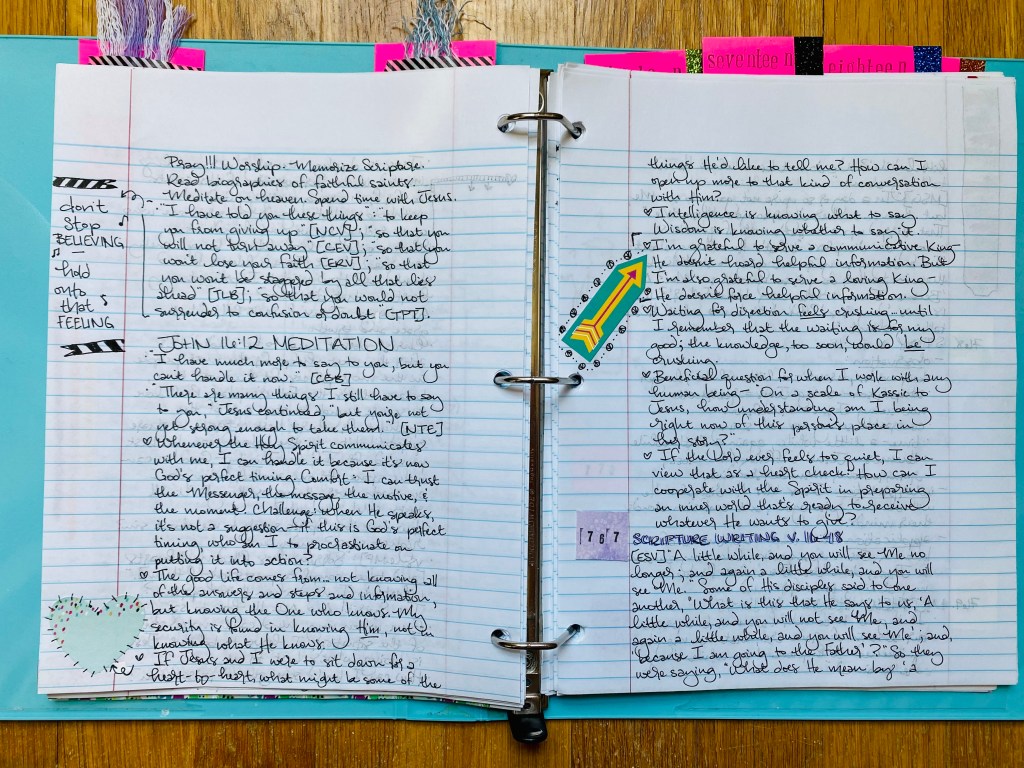 seventeen
eighteen
Pray!!! Worship. Memorize Scripture.
Read biographies of faithful saints.
Meditate on heaven. Spend time with Jesus.
"I have told you these things": "to keep
you from giving up" [NCV]; "so that you
will not turn away" [CEV]; "so that you
won't lose your faith [ERV]; "so that
you won't be staggered by all that lies
ahead" [TLB]; "so that you would not
surrender to confusion or doubt" [TPT].
don't
stop
BELIEVING
hold
onto
that
FEELING
JOHN 16:12 MEDITATION
"I have much more to say to you, but you
can't handle it now." [CEB]
"'There are many things I still have to say
to you,' Jesus continued, 'but you're not
yet strong enough to take them.'" [NTE]
Whenever the Holy Spirit communicates
with me, I can handle it because it's now
God's perfect timing. Comfort: I can trust
the Messenger, the message, the motive, &
the moment. Challenge: When He speaks,
it's not a suggestion—if this is God's perfect
timing, who am I to procrastinate on
putting it into action?
The good life comes from... not knowing all
of the answers and steps and information,
but knowing the One who knows. My
security is found in knowing Him, not in
knowing what He knows.
If Jesus and I were to sit down for a
heart-to-heart, what might be some of the
things He'd like to tell me? How can I
open up more to that kind of conversation
with Him?
Intelligence is knowing what to say.
Wisdom is knowing whether to say it.
I'm grateful to serve a communicative King—
He doesn't hoard helpful information. But
I'm also grateful to serve a loving King—
He doesn't force helpful information.
Waiting for direction feels crushing... until
I remember that the waiting is for my
good; the knowledge, too soon, would be
crushing.
Beneficial question for when I work with any
human being— "On a scale of Kassie to
Jesus, how understanding am I being
right now of this person's place in
her story?"
If the Lord ever feels too quiet, I can
view that as a heart check. How can I
cooperate with the Spirit in preparing
an inner world that's ready to receive
whatever He wants to give?
767
SCRIPTURE WRITING V. 16-18
[ESV] "A little while, and you will see Me no
longer; and again a little while, and you will
see Me." Some of His disciples said to one
another, "What is this that He says to us, 'A
little while, and you will not see Me, and
again a little while, and you will see Me'; and,
'because I am going to the Father'?" So they
were saying, "What does He mean by 'a